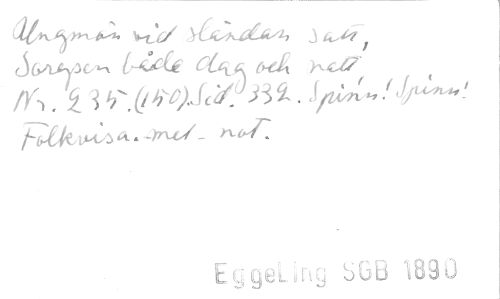 Ungmön vid sländan satt,
Sorgsen både dag och natt
Nr. 235.(150).Sid. 332. Spinn! Spinn!
Folkvisa. med not.
EggeLing SGB 1890